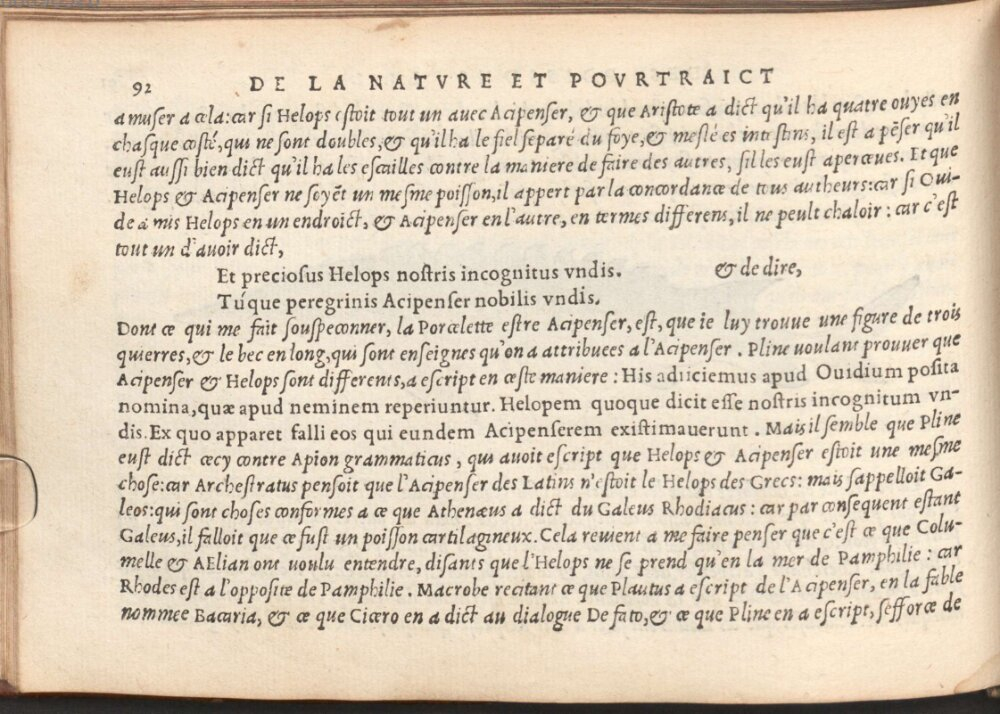 92 DE LA NATVRE ET POVRTRAICT
amuser a cela: car si Helops estoit tout un auec Acipenser, & que Aristote a dict qu'il ha quatre ouyes en
chasque costé, qui ne sont doubles, & qu'il ha le fiel separé du foye, & meslé es intestins, il est a pẽser qu'il
eust aussi bien dict qu'il ha les escailles contre la maniere de faire des autres, s'il les eust aperceues. Et que
Helops & Acipenser ne soyẽt un mesme poisson, il appert par la concordance de tous autheurs: car si Oui-
de a mis Helops en un endroict, & Acipenser en l'autre, en termes differens, il ne peult chaloir: car c'est
tout un d'auoir dict,
Et preciosus Helops nostris incognitus vndis. & de dire,
Túque peregrinis Acipenser nobilis vndis.
Dont ce qui me fait souspeconner, la Porcelette estre Acipenser, est, que ie luy trouue une figure de trois
quierres, & le bec en long, qui sont enseignes qu'on a attribuees a l'Acipenser. Pline voulant prouuer que
Acipenser & Helops sont differents, a escript en ceste maniere: His adiiciemus apud Ouidium posita
nomina, quæ apud neminem reperiuntur. Helopem quoque dicit esse nostris incognitum vn-
dis. Ex quo apparet falli eos qui eundem Acipenserem existimauerunt. Mais il semble que Pline
eust dict cecy contre Apion grammaticus, qui auoit escript que Helops & Acipenser estoit une mesme
chose: car Archestratus pensoit que l'Acipenser des Latins n'estoit le Helops des Grecs: mais s'appelloit Ga-
leos: qui sont choses conformes a ce que Athenæus a dict du Galeus Rhodiacus: car par consequent estant
Galeus, il falloit que ce fust un poisson cartilagineux. Cela reuient a me faire penser que c'est ce que Colu-
melle & AElian ont voulu entendre, disants que l'Helops ne se prend qu'en la mer de Pamphilie: car
Rhodes est a l'opposite de Pamphilie. Macrobe recitant ce que Plautus a escript de l'Acipenser, en la fable
nommee Bacaria, & ce que Cicero en a dict au dialogue De fato, & ce que Pline en a escript, s'efforce de